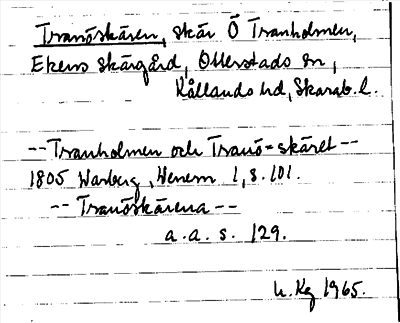 Tranöskären, skär Ö Tranholmen,
Ekens skärgård, Otterstads sn,
Kållands hd, Skarab. l.
-- Tranholmen och Tranö=skäret --
1805 Warberg, Wenern 1, s. 101.
-- Tranöskärena --
a.a. s. 129.
1965.